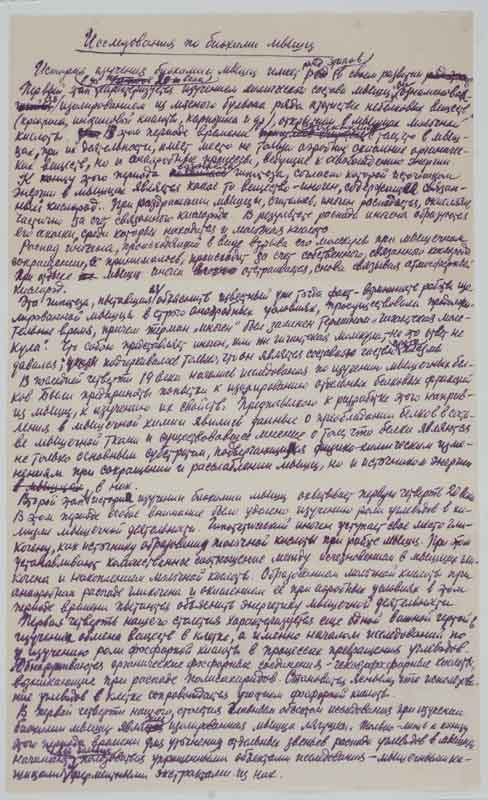 Исследования по биохимии мышц
История изучения биохимии мышц имеет в своем развитии ряд этапов
Первый этап характеризуется изучением химического состава мышц,
изолированием из мясного бульона ряда
(креатина, кислоты, карнозина и др), открытием в мышце молочной
кислоты. В этом периоде времени что в мыш-
цах, при их деятельности, имеет место не только аэробное окисление органичес-
ких веществ, но и анаэробные процессы, ведущие к освобождению энергии
К концу этого периода гипотеза, согласно которой источником
энергии в мышцах является какое то вещество-иноген, содержащее связан-
ный кислород. При раздражении мышцы, иноген распадается, окисляясь
частично за счет связанного кислорода. В результате распада иногена образуются
его осколки, среди которых находится и молочная кислота
Распад иногена, происходящий в виде взрыва его молекулы при мышечном
сокращении, принималось, происходит за счет собственного, связанного кислорода
При отдыхе мышцы иноген восстанавливается, снова связывая атмосферный
кислород.
Эта гипотеза, пытавшаяся объяснить известный уже тогда факт работы изо-
лированной мышцы в строго анаэробных условиях, просуществовала продолжи-
тельное время, причем термин иноген был заменен термином "гигантская моле-
кула". Что собой представляет иноген, или эта гигантская молекула, на это ответ не
давался; подчеркивалось только, что он является
В последней четверти 19 века начались исследования по изучению мышечных бел-
ков. Были предприняты попытки к изолированию отдельных белковых фракций
из мышц, к изучению их свойств. Предпосылкой к разработке этого направ-
ления в мышечной химии явились данные о преобладании белков в соста-
ве мышечной ткани и существовавшее мнение о том, что белки являются
не только основным субстратом, подвергающимся физико-химическим изме-
нениям при сокращении и расслаблении мышц, но и источником энергии
в них.
Второй этап истории изучения биохимии мышц охватывает первую четверть 20 века
В этом периоде особое внимание было уделено изучению роли углеводов в хи-
мизме мышечной деятельности. Гипотетический иноген уступает свое место гли-
когену, как источнику образования молочной кислоты при работе мышц. При этом
устанавливают количественное соотношение между исчезновением в мышцах гли-
когена и накоплением молочной кислоты. Образованием молочной кислоты при
анаэробном распаде гликогена и окислением ее при аэробных условиях в этом
периоде времени пытаются объяснить энергетику мышечной деятельности
Первая четверть нашего столетия характеризуется еще одной важной чертой в
изучении обмена веществ в клетке, а именно началом исследований по
изучению роли фосфорной кислоты в процессах превращения углеводов.
Обнаруживаются органические фосфорные соединения - гексозофосфорные кислоты,
возникающие при распаде полисахаридов. Становится ясным, что использова-
ние углеводов в клетке сопровождается участием фосфорной кислоты.
В первой четверти нашего столетия основным объектом исследования при изучении
биохимии мышц являлась изолированная мышца лягушки. Только лишь к концу
этого периода времени для уточнения отдельных звеньев распада углеводов в мышцах
начинают пользоваться упрощенными объектами исследования - мышечными ка-
шицами, ферментными экстрактами из них.